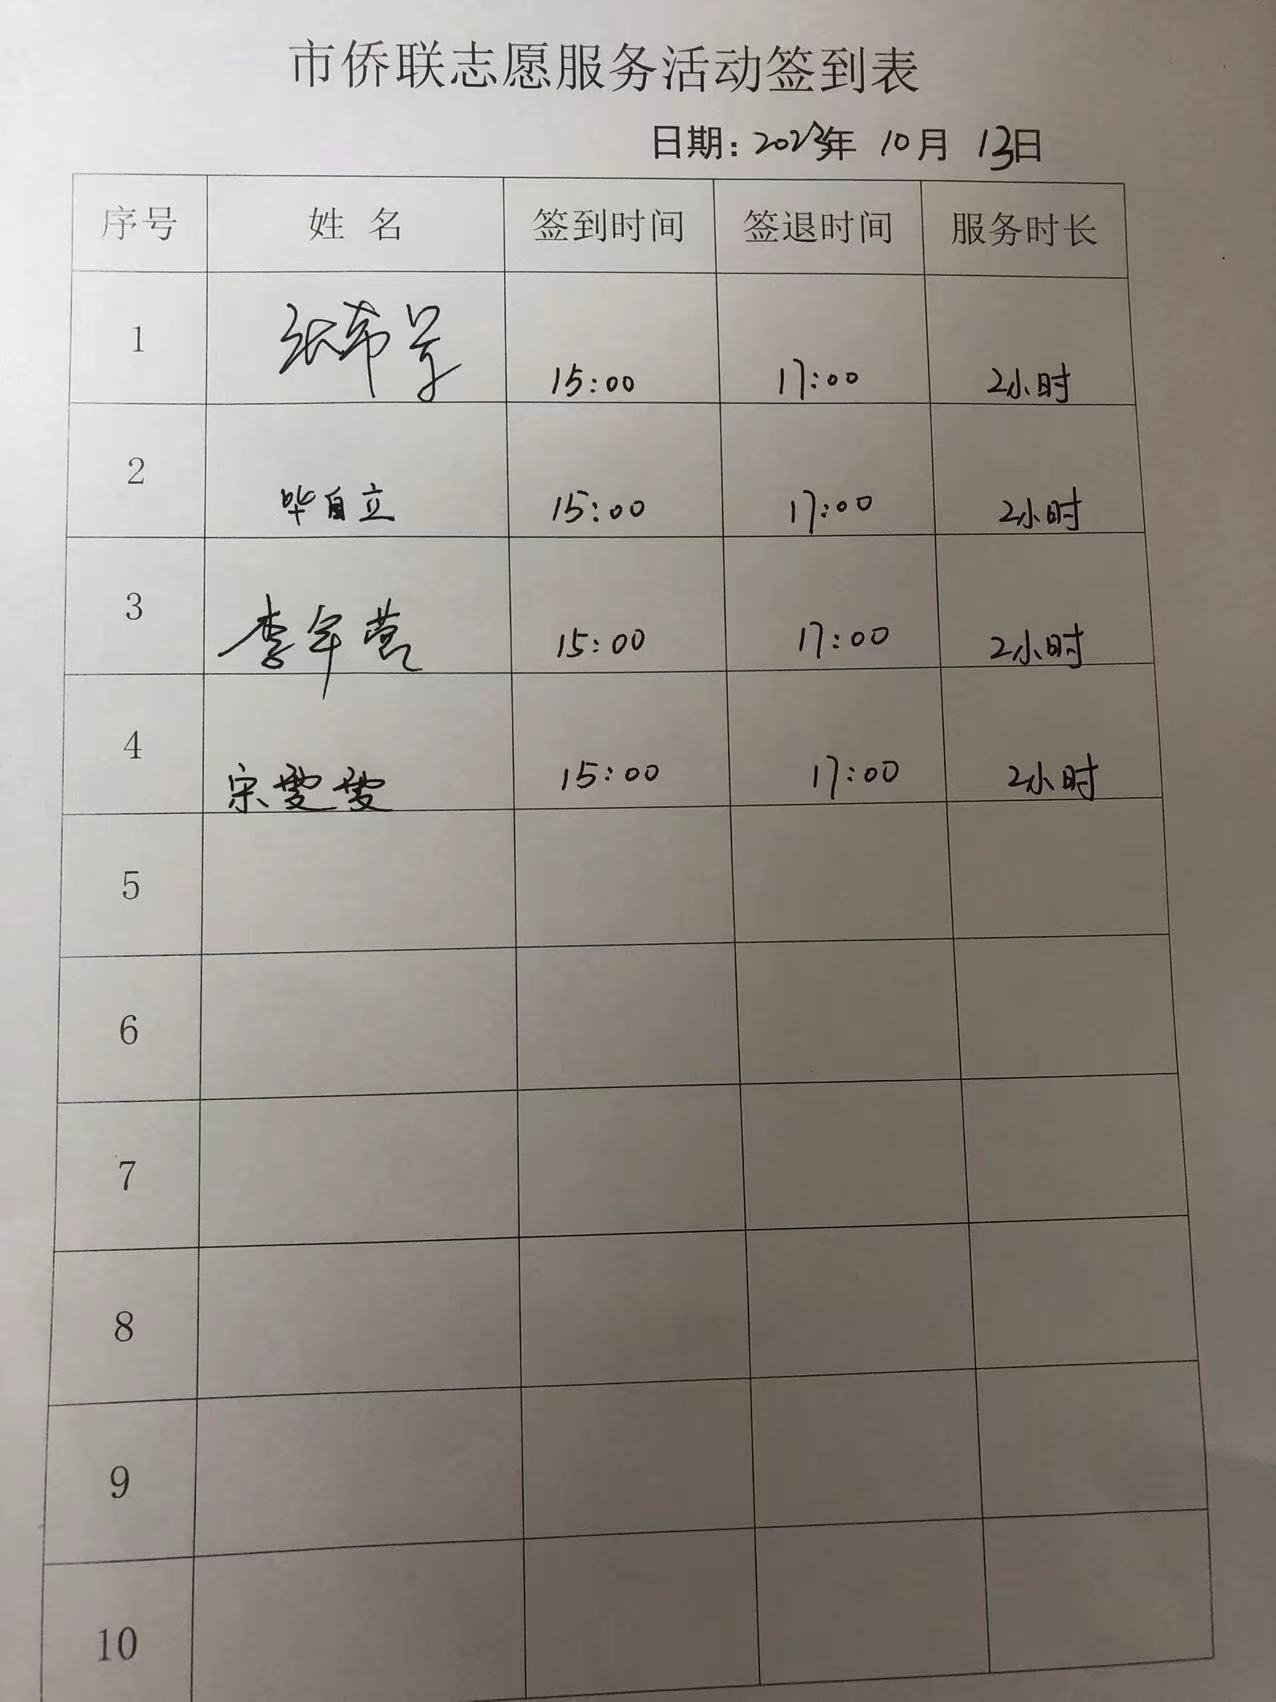 市侨联志愿服务活动签到表
日期: 2023年 10月 13日
序号 姓 名 签到时间 签退时间 服务时长
1 张希 15:00 17:00 2小时
2 毕自立 15:00 17:00 2小时
3 李年营 15:00 17:00 2小时
4 宋雯雯 15:00 17:00 2小时
5
6
7
8
9
10